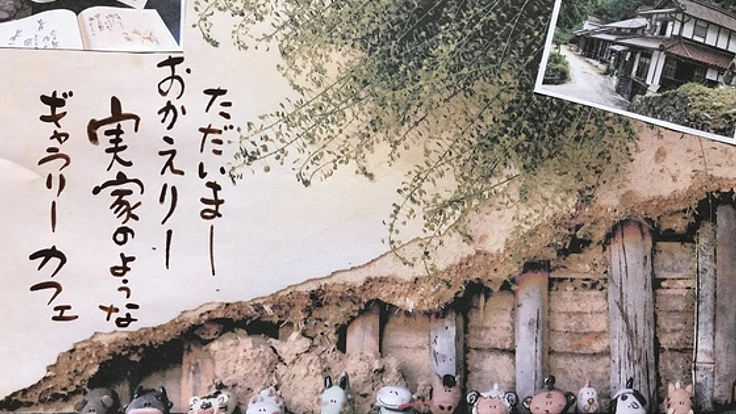 ただいまー
おかえりー
実家のような
ギャラリーカフェ